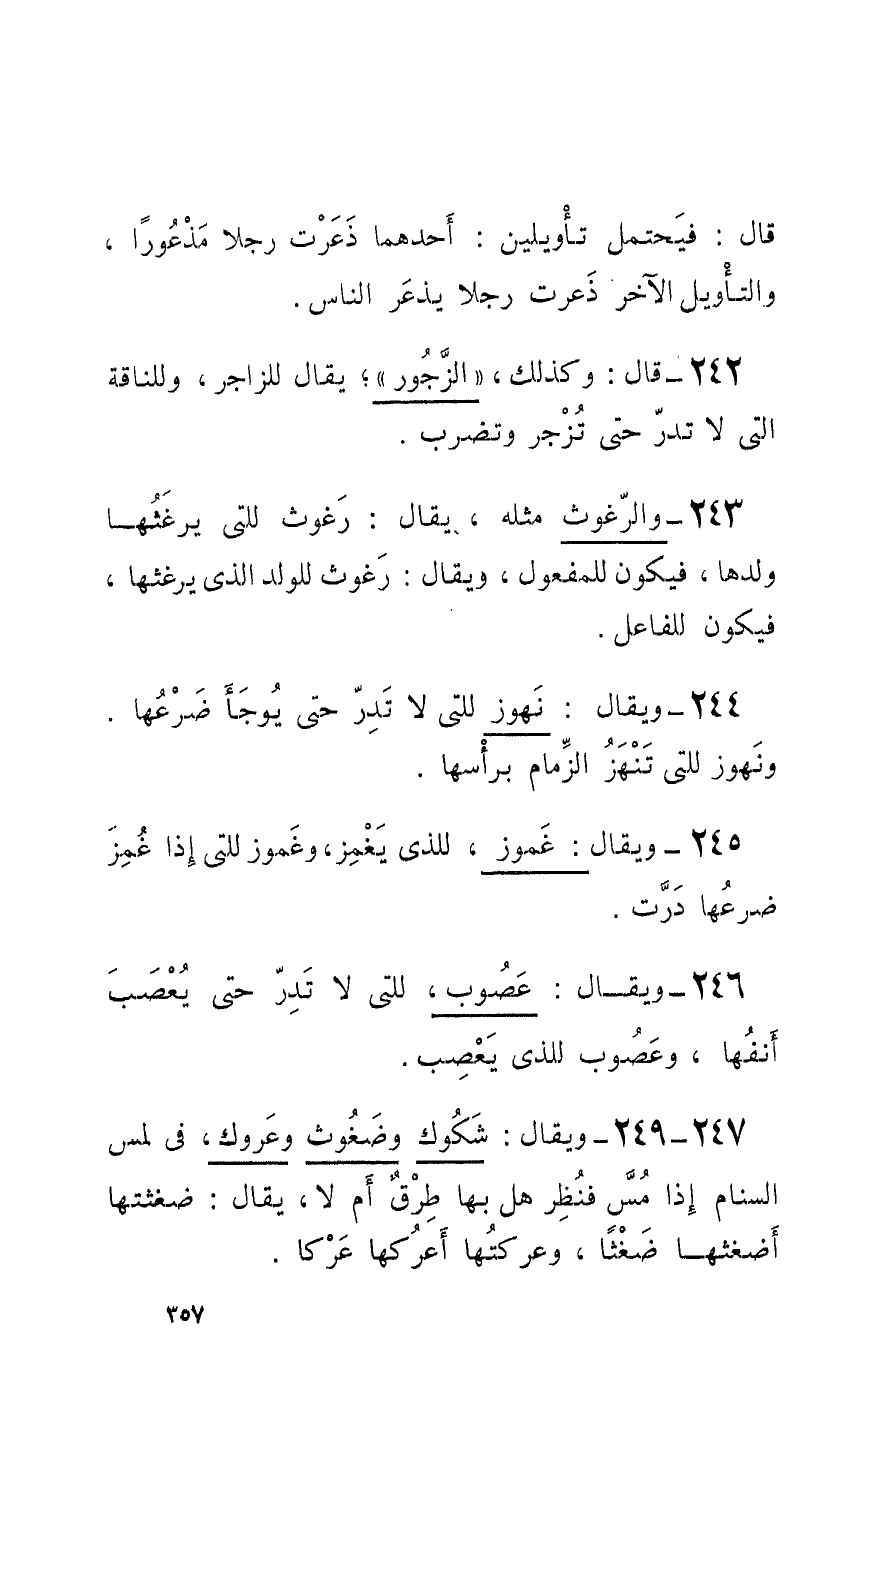 قال : فيَحتمل تأْويلين : أَحدهما ذَعَرْت رجلا مَذْعُورًا ،
والتأْويل الآخر ذَعرت رجلا يذعَر الناس .
٢٤٢ــقال : وكذلك ، « الزَّجُور » ؛ يقال للزاجر ، وللناقة
التى لا تدرّ حتى تُزْجر وتضرب .
٢٤٣ــوالرّغوث مثله ، يقال : رَغوث للتى يرغَثُهـا
ولدها ، فيكون للمفعول ، ويقال : رَغوث للولد الذى يرغثها ،
فيكون للفاعل .
٢٤٤ــويقال : نَهوز للتى لا تَدِرّ حتى يُوجَأَ ضَرْعُها .
ونَهوز للتى تَنْهَزُ الزِّمام برأْسها .
٢٤٥ ــ ويقال : غَموز ، للذى يَغْمِز ، وغَموز للتى إِذا غُمِزَ
ضرعُها دَرَّت .
٢٤٦ــويقـال : عَصُوب ، للتى لا تَدِرّ حتى يُعْصَبَ
أَنفُها ، وعَصُوب للذى يَعْصِب .
٢٤٧ــ٢٤٩ــويقال : شَكُوك وضَغُوث وعَروك ، فى لمس
السنام إِذا مُسَّ فنُظِر هل بها طِرْقٌ أَم لا ، يقال : ضغثتها
أَضغثهـا ضَغْثًا ، وعركتُها أَعرُكها عَرْكا .
٣٥٧